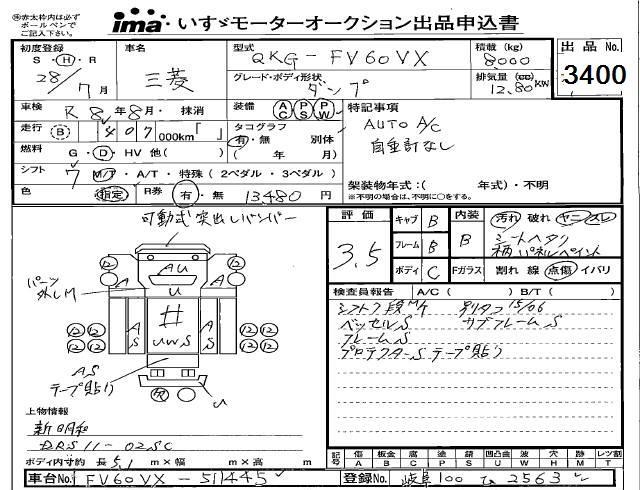 ※赤太枠内は必ず
ボールペンで
ご記入下さい。
ima いすゞモーターオークション出品申込書
初度登録
S・H・R
28/7月
車名
三菱
型式
QKG-FV60VX
グレード・ボディ形状
ダンプ
積載(kg)
8000
排気量(cc)
12.80KW
出品No.
3400
車検
R 8年8月・抹消
装備
AC PS PW
特記事項
AUTO A/C
自重計なし
走行
(B) 407,000km「 」
タコグラフ
有・無 別体
( 年 月)
燃料
G・D・HV 他( )
シフト
7 M/T・A/T・特殊(2ペダル・3ペダル)
架装物年式:( 年式)・不明
※不明の場合は、不明に○をする。
色
指定
R券
有・無 13,480円
評価
3.5
キャブ B
フレーム B
ボディ C
内装 B
Fガラス
汚れ 破れ ヤニ スレ
シートヘタリ
柄パネルペイント
割れ 線 点傷 イバリ
可動式突出しバンパー
12 12
AU
U
パーツ
外しM
A
S
#
UWS
A
S
12 12 12 12
12 12 12 12
AS
テープ貼り
U
検査員報告 A/C( ) B/T( )
シフト7段M/T
別タコ15/06
ベッセルS
サブフレームS
フレームS
プロテクターS テープ貼り
上物情報
新明和
DRS11-02SC
ボディ内寸約 長 5.1 m×幅 m×高 m
記号
傷 板金 腐 塗 錆 凹凸曲 波 穴 跡 レツ割
A B C P S U W H M T
車台No.
FV60VX-511445
登録No.
岐阜100 ひ2563